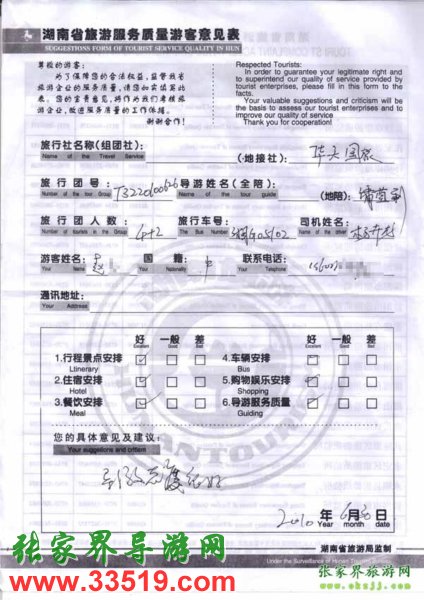 湖南省旅游服务质量游客意见表
SUGGESTIONS FORM OF TOURIST SERVICE QUALITY IN HUN
尊敬的游客:
为了保障您的合法权益,监督我省
旅游企业的服务质量,请您如实填写此
表。您的宝贵意见,将作为我们考核旅
游企业,改进质量的工作依据。
谢谢合作!
Respected Tourists:
In order to guarantee your legitimate right and
to superintend our quality of service provided by
tourist enterprises, please fill in this form to the
facts.
Your valuable suggestions and criticism will be
the basis to assess our tourist enterprises and to
improve our quality of service
Thank you for cooperation!
旅行社名称(组团社): (地接社): 华天国旅
Name of the Travel Service
旅行团号: 导游姓名(全陪): (地陪):
Number of the tour Group Name of the tour guide
旅行团人数: 4+2 旅行车号: 司机姓名:
Number of tourists in the Group The Bus Number Name of the driver
游客姓名: 赵 国籍: 中 联系电话:
Your Name Your Nationality Your Telephone
通讯地址:
Your Address
好 一般 差 好 一般 差
Excellent Good Bad Excellent Good Bad
1.行程景点安排 4.车辆安排
Ltinerary Bus
2.住宿安排 5.购物娱乐安排
Hotel Shopping
3.餐饮安排 6.导游服务质量
Meal Guiding
您的具体意见及建议:
Your suggestions and critism
2010年6月30日
Year month date
湖南省旅游局监制
Under the Surveillance of Hunan Tourism Bureau
张家界导游网
www.33519.com
张家界旅游网
www.okzjj.com